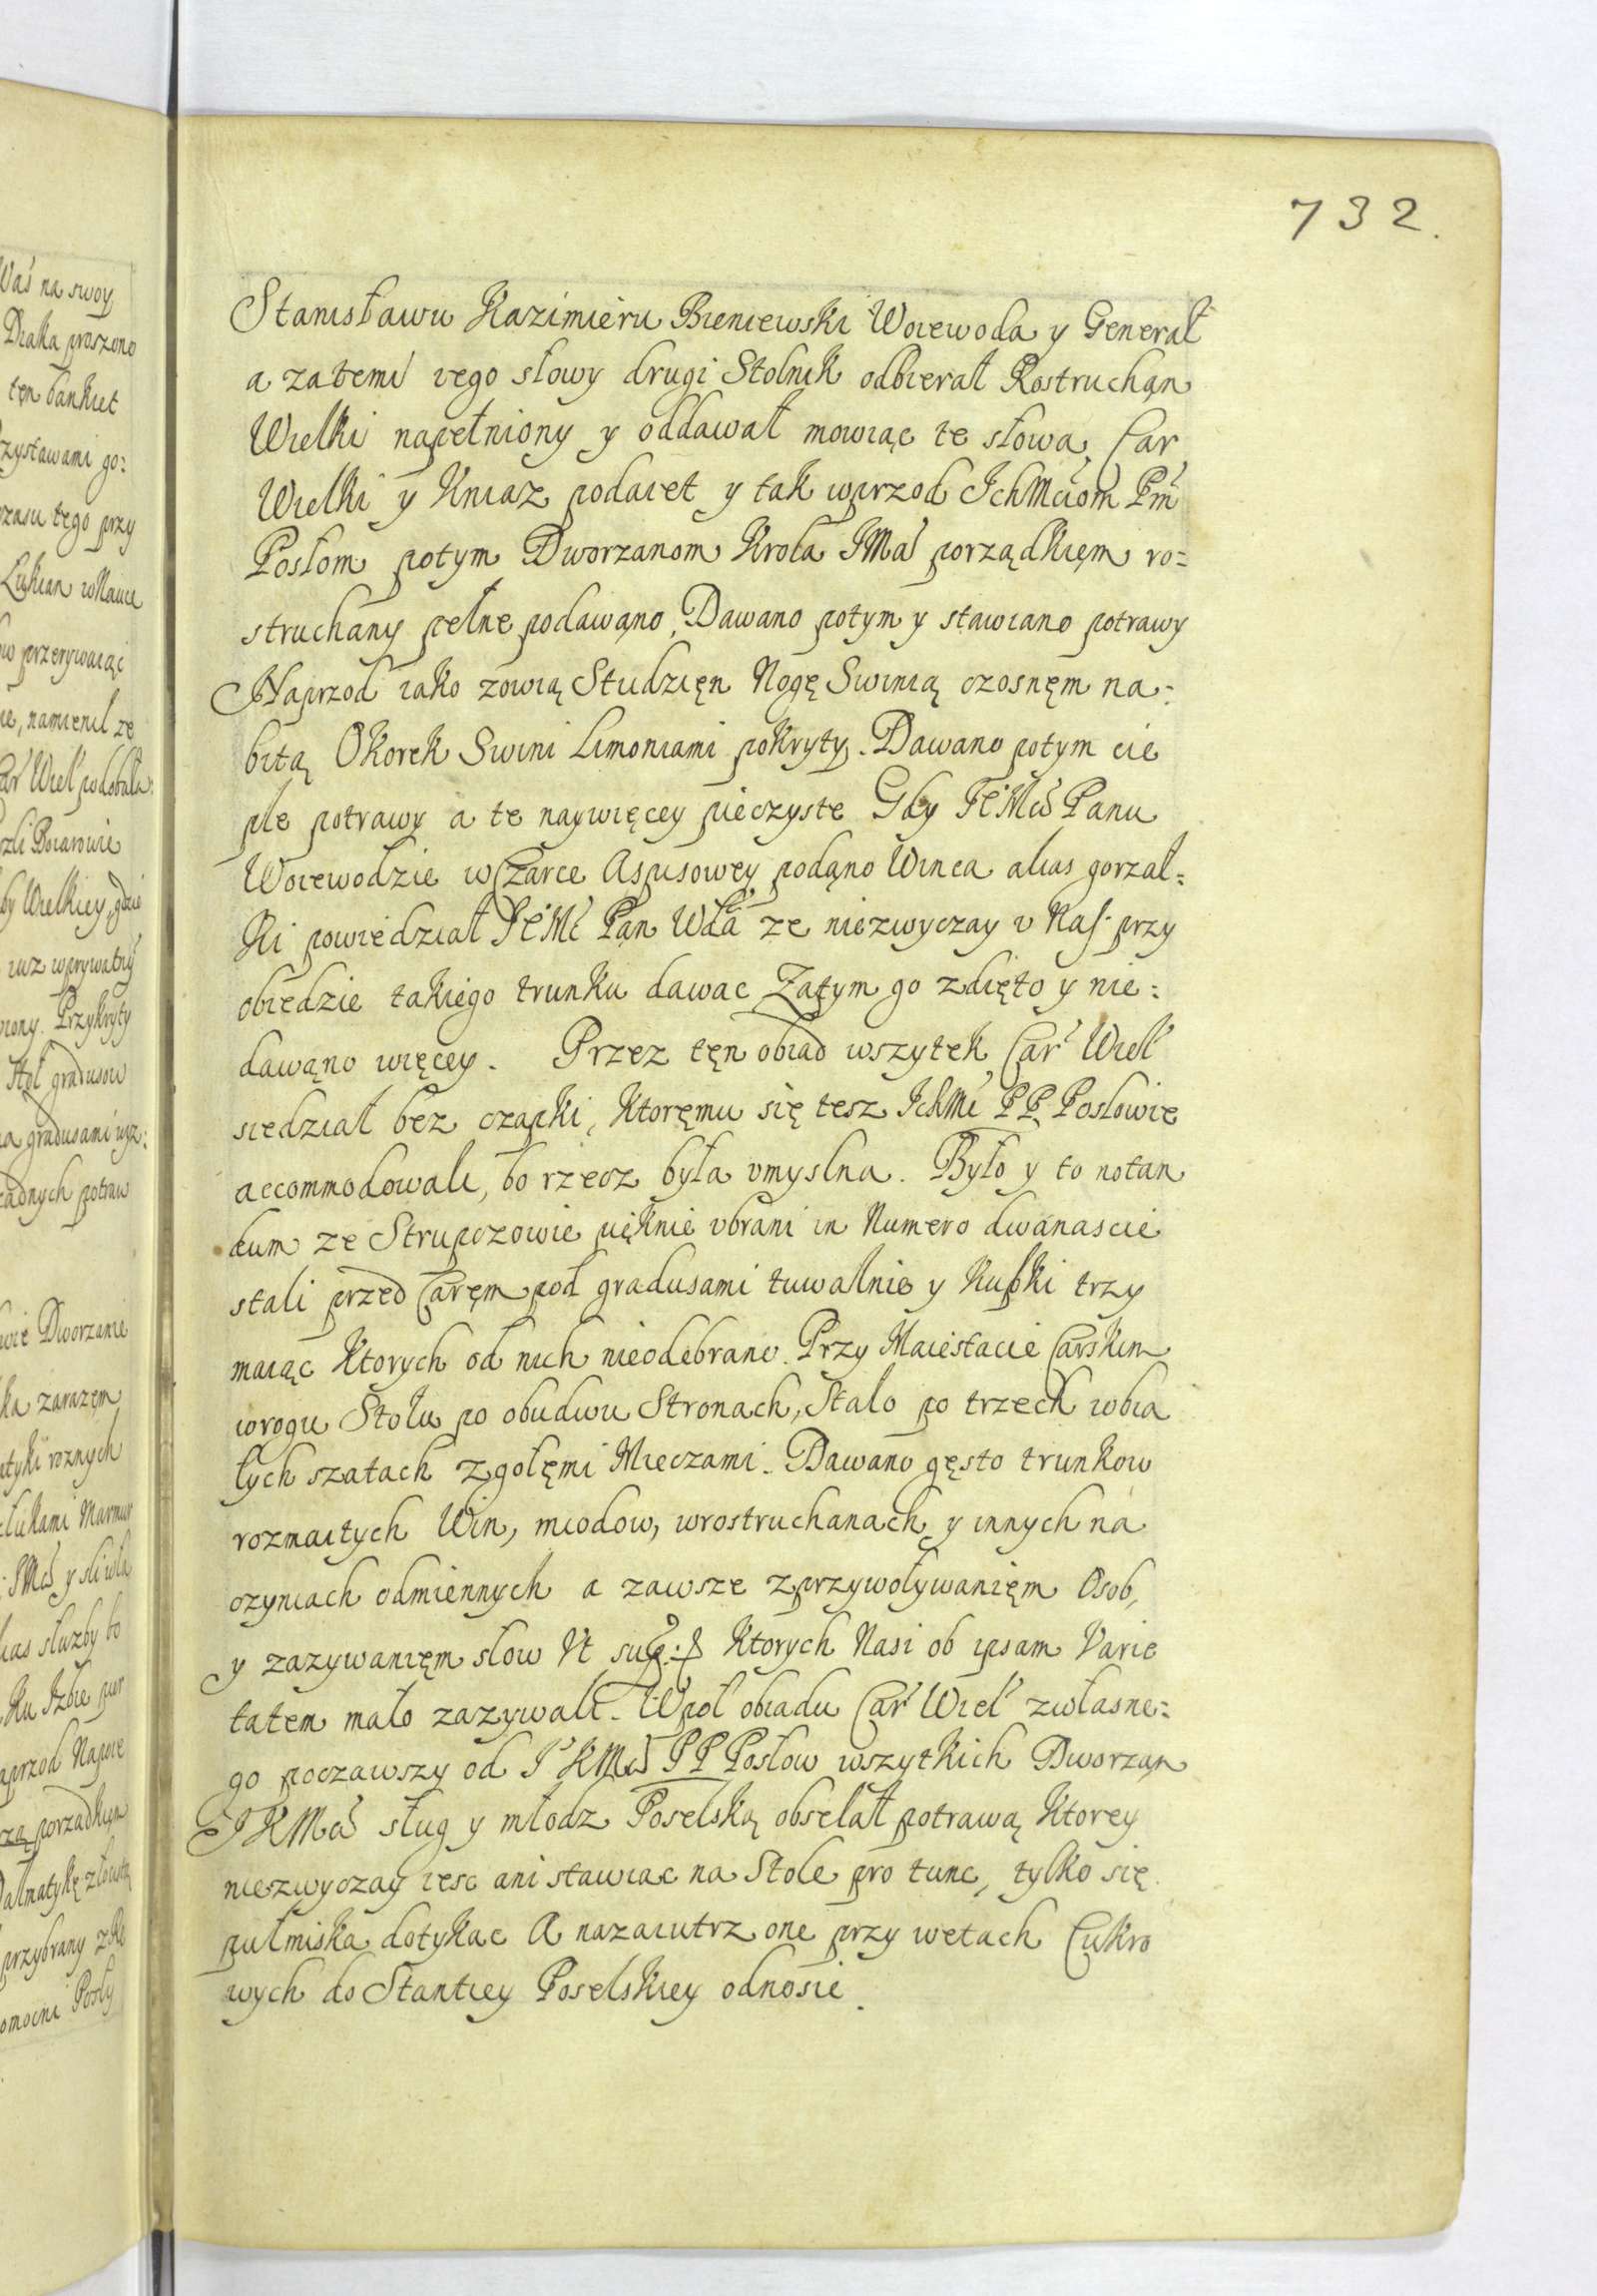 732.
Stanisławu Kazimieru Bieniewski Woiewoda y Generał
a zatemi iego słowy drugi Stolnik odbierał Rostruchan
Wielki napełniony y oddawał mowiąc te słowa, Car
Wielki y Kniaz podaiet y tak wprzod IchMciom Pm
Posłom potym Dworzanom Krola JMci porządkięm ro=
struchany pełne podawąno, Dawano potym y stawiano potrawy
Naprzod iako zowią Studzięn Nogę Swinią czosnęm na=
bitą Okorek Swini Limoniami pokryty. Dawano potym cie
ple potrawy a te naywięcey pieczyste Gdy JeMci Panu
Woiewodzie w Czarce Aspisowey podąno Winca alias gorzał=
ki powiedział JeMć Pan Wda ze niezwyczay v Nas przy
obiedzie takiego trunku dawac Zatym go zdięto y nie=
dawąno więcey. Przez tęn obiad wszytek Car Wiel
siedział bez czapki, ktoręmu się tesz IchMć PP Posłowie
accommodowali, bo rzecz była vmyslna. Było y to notan
dum ze Strupczowie pięknie vbrani in Numero dwanascie
stali przed Caręm pod gradusami tuwalnie y Kubki trzy
maiąc ktorych od nich nieodebrano. Przy Maiestacie Carskim
wrogu Stołu po obudwu Stronach, Stało po trzech wbia
łych szatach zgołęmi Mieczami. Dawano gęsto trunkow
rozmaitych Win, miodow, wrostruchanach y innych na
czyniach odmiennych a zawsze zprzywoływanięm Osob,
y zazywanięm słow Vt ktorych Nasi ob ipsam Varie
tatem mało zazywali. Wpoł obiadu Car Wiel zwłasne=
go poczawszy od PP Posłow wszytkich Dworzan
JKMci sług y młodz Poselską obselał potrawą ktorey
niezwyczay iesc ani stawiac na Stole pro tunc, tylko się
pułmiska dotykac A nazaiutrz one przy wetach Cukro
wych do Stantiey Poselskiey odnosie.
Waś na swoy
Diaka proszono
tęn bankiet
zystawami go:
czasu tego przy
przerywaiąc
namienił ze
Wiel podobała
Boiarowie
by Wielkiey, gdzie
iuz wprywatny
Przykryty
Stoł gradusow
gradusami
potraw
Dworzanie
zarazęm
roznych
słuzby bo
Ku Izbie
porządkięm
przybrany
Posły